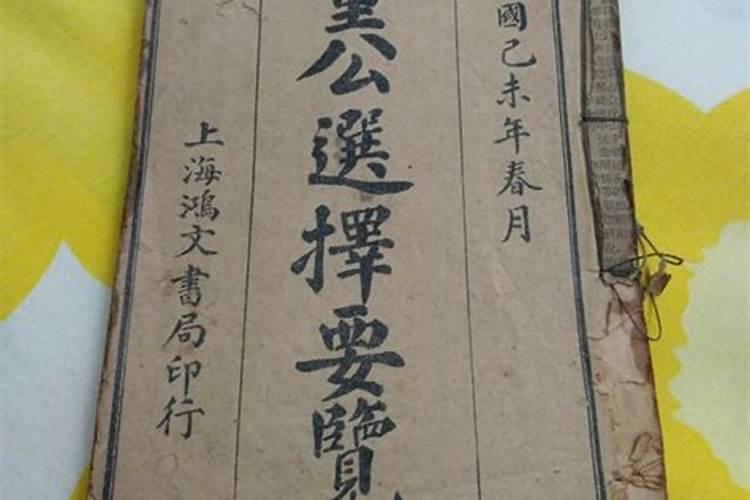 國己未年春月
董公選擇要覽
上海鴻文書局印行